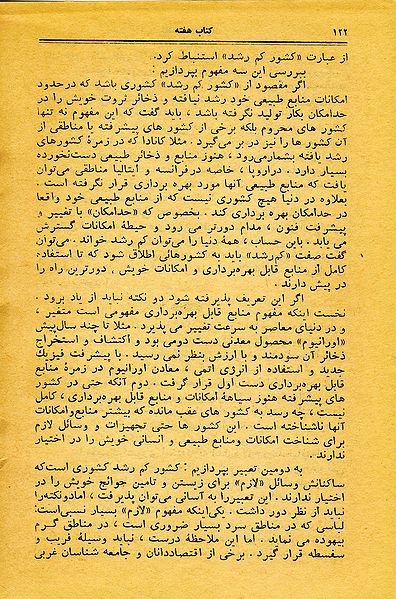 ۱۲۲
کتاب هفته
از عبارت «کشور کم رشد» استنباط کرد.
ببررسی این سه مفهوم بپردازیم :
اگر مقصود از «کشور کم رشد» کشوری باشد که درحدود
امکانات منابع طبیعی خود رشد نیافته و ذخائر ثروت خویش را در
حدامکان بکار تولید نگرفته باشد ، باید گفت که این مفهوم نه تنها
کشور های محروم بلکه برخی از کشور های پیشرفته یا مناطقی از
آن کشور ها را نیز در بر می‌گیرد . مثلا کانادا که در زمرهٔ کشورهای
رشد یافته بشمارمی‌رود ، هنوز منابع و ذخائر طبیعی دست‌نخورده
بسیار دارد . دراروپا ، خاصه درفرانسه و ایتالیا مناطقی می‌توان
یافت که منابع طبیعی آنها مورد بهره برداری قرار نگرفته است .
بعلاوه در دنیا هیچ کشوری نیست که از منابع طبیعی خود واقعا
در حدامکان بهره برداری کند . بخصوص که «حدامکان» با تغییر و
پیشرفت فنون ، مدام دورتر می رود و حیطهٔ امکانات گسترش
می یابد . باین حساب ، همهٔ دنیا را می‌توان کم رشد خواند . می‌توان
گفت صفت «کم‌رشد» باید به کشورهائی اطلاق شود که تا استفاده
کامل از منابع قابل بهره‌برداری و امکانات خویش ، دورترین راه را
در پیش دارند .
اگر این تعریف پذیرفته شود دو نکته نباید از یاد برود .
نخست اینکه مفهوم منابع قابل بهره‌برداری مفهومی است متغیر ،
و در دنیای معاصر به سرعت تغییر می پذیرد . مثلا تا چند سال‌پیش
«اورانیوم» محصول معدنی دست دومی بود و اکتشاف و استخراج
ذخائر آن سودمند و با ارزش بنظر نمی رسید . با پیشرفت فیزیک
جدید و استفاده از انرژی اتمی ، معادن اورانیوم در زمرهٔ منابع
قابل بهره‌برداری دست اول قرار گرفت . دوم آنکه حتی در کشور
های پیشرفته هنوز سیاههٔ امکانات و منابع قابل بهره‌برداری ، کامل
نیست ، چه رسد به کشور های عقب مانده که بیشتر منابع‌وامکانات
آنها ناشناخته است . این کشور ها حتی تجهیزات و وسائل لازم
برای شناخت امکانات ومنابع طبیعی و انسانی خویش را در اختیار
ندارند .
به دومین تعبیر بپردازیم : کشور کم رشد کشوری است‌که
ساکنانش وسائل «لازم» برای زیستن و تامین حوائج خویش را در
اختیار ندارند . این تعبیررا به آسانی می‌توان پذیرفت ، امادونکته‌را
نباید از نظر دور داشت . یکی‌اینکه مفهوم «لازم» بسیار نسبی‌است:
لباسی که در مناطق سرد بسیار ضروری است ، در مناطق گرم
بیهوده می نماید . اما این ملاحظهٔ درست ، نباید وسیلهٔ فریب و
سفسطه قرار گیرد . برخی از اقتصاددانان و جامعه شناسان غربی